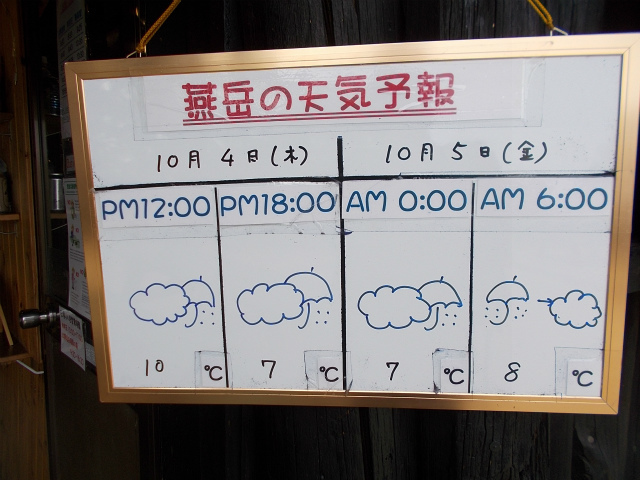 燕岳の天気予報
10月 4日(木) 10月 5日(金)
PM12:00 PM18:00 AM 0:00 AM 6:00
10 ℃ 7 ℃ 7 ℃ 8 ℃